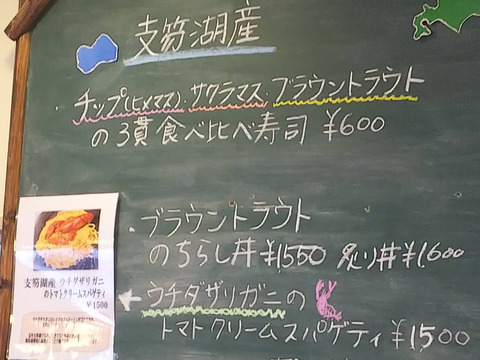 支笏湖産
・チップ(ヒメマス)・サクラマス・ブラウントラウト
の3貫食べ比べ寿司 ¥600
・ブラウントラウト
のちらし丼¥1550 炙り丼¥1600
ウチダザリガニの
トマトクリームスパゲティ ¥1500
支笏湖産 ウチダザリガニ
のトマトクリームスパゲティ
¥1500